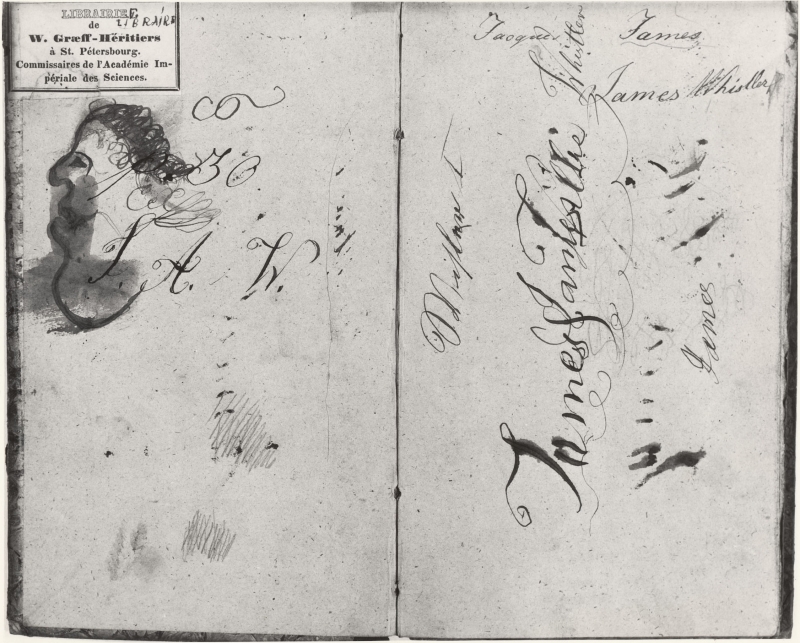 LIBRAIRIE
LIBRAIRE
de
W. Græff-Héritiers
à St. Pétersbourg.
Commissaires de l'Académie Im-
périale des Sciences.
J. A. W.
Jacques
James
James Whistler
Whistler
James
James
James